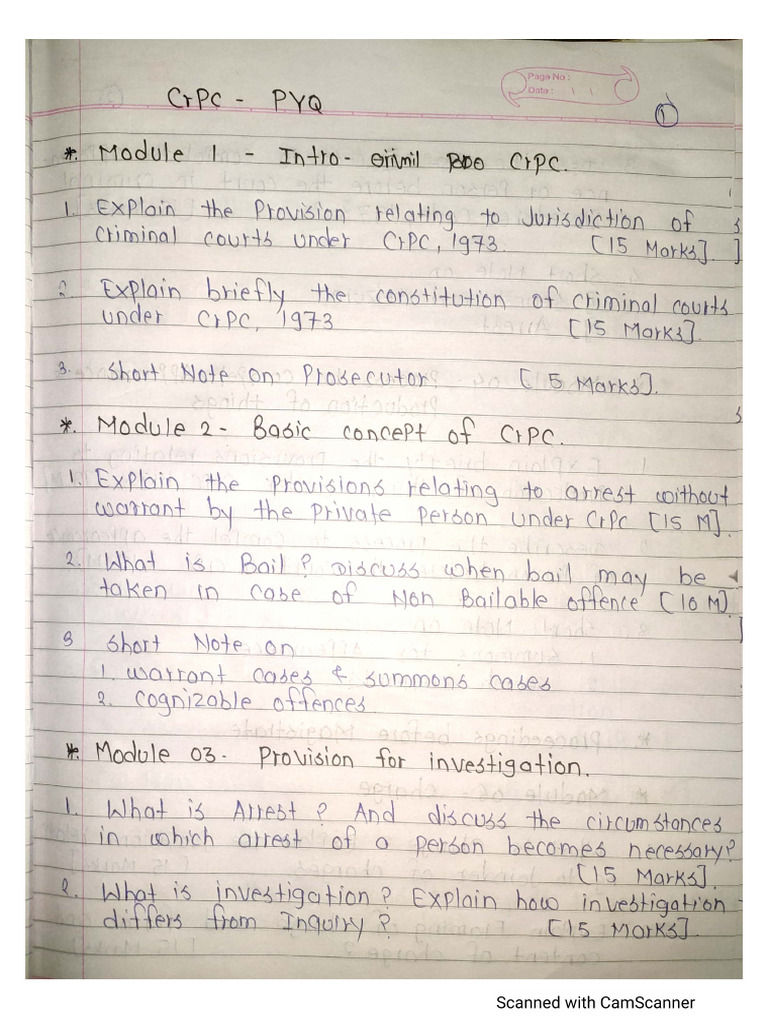 Page No :
Date :
CrPC - PYQ
1
*. Module 1 - Intro - CrPC.
1. Explain the Provision relating to Jurisdiction of
criminal courts under CrPC, 1973. [15 Marks].
2. Explain briefly the constitution of criminal courts
under CrPC, 1973 [15 Marks].
3. Short Note on Prosecutor? [5 Marks].
*. Module 2 - Basic concept of CrPC.
1. Explain the provisions relating to arrest without
warrant by the private person under CrPC [15 M].
2. What is Bail? Discuss when bail may be
taken in case of Non Bailable offence [10 M].
3 Short Note on
1. warrant cases & summons cases
2. cognizable offences
*. Module 03. Provision for investigation.
1. What is Arrest? And discuss the circumstances
in which arrest of a person becomes necessary?
[15 Marks].
2. What is investigation? Explain how investigation
differs from Inquiry? [15 Marks].
Scanned with CamScanner